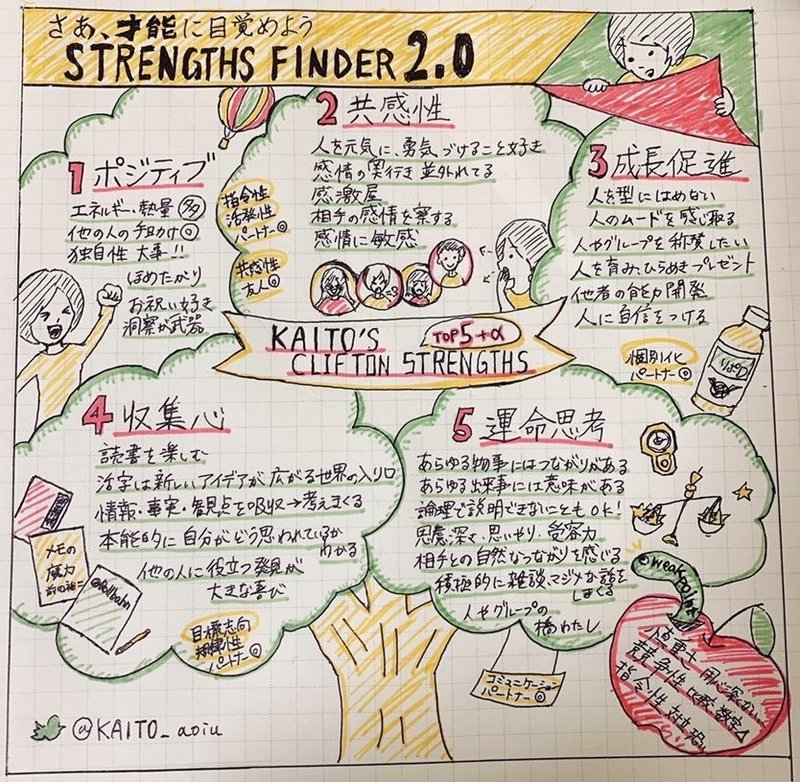 さあ、才能に目覚めよう
STRENGTHS FINDER 2.0
1 ポジティブ
エネルギー・熱量 多
他の人の手助け◎
独自性 大事!!
ほめたがり
お祝い好き
洞察が武器
2 共感性
人を元気に、勇気づけること好き
感情の奥行き 並外れてる
感激屋
相手の感情を察する
感情に敏感
指令性
活発性
パートナー◎
共感性
友人◎
3 成長促進
人を型にはめない
人のムードを感じ取る
人やグループを称賛したい
人を育み、ひらめきプレゼント
他者の能力開発
人に自信をつける
個別化
パートナー◎
リポD
KAITO'S TOP5+α
CLIFTON STRENGTHS
4 収集心
読書を楽しむ
活字は新しいアイデアが広がる世界の入り口
情報・事実・観点を吸収→考えまくる
本能的に自分がどう思われているか
わかる
他の人に役立つ発見が
大きな喜び
メモの
魔力
前田裕二
目標志向
規律性
パートナー◎
5 運命思考
あらゆる物事にはつながりがある
あらゆる出来事には意味がある
論理で説明できないこともOK!
思慮深さ、思いやり、受容力
相手との自然なつながりを感じる
積極的に雑談、マジメな話を
しまくる
人やグループの
橋わたし
コミュニケーション
パートナー◎
weakpoint
慎重さ 用心深くない
競争性 比較 数字△
指令性 対立 恐い
@KAITO_aoiu